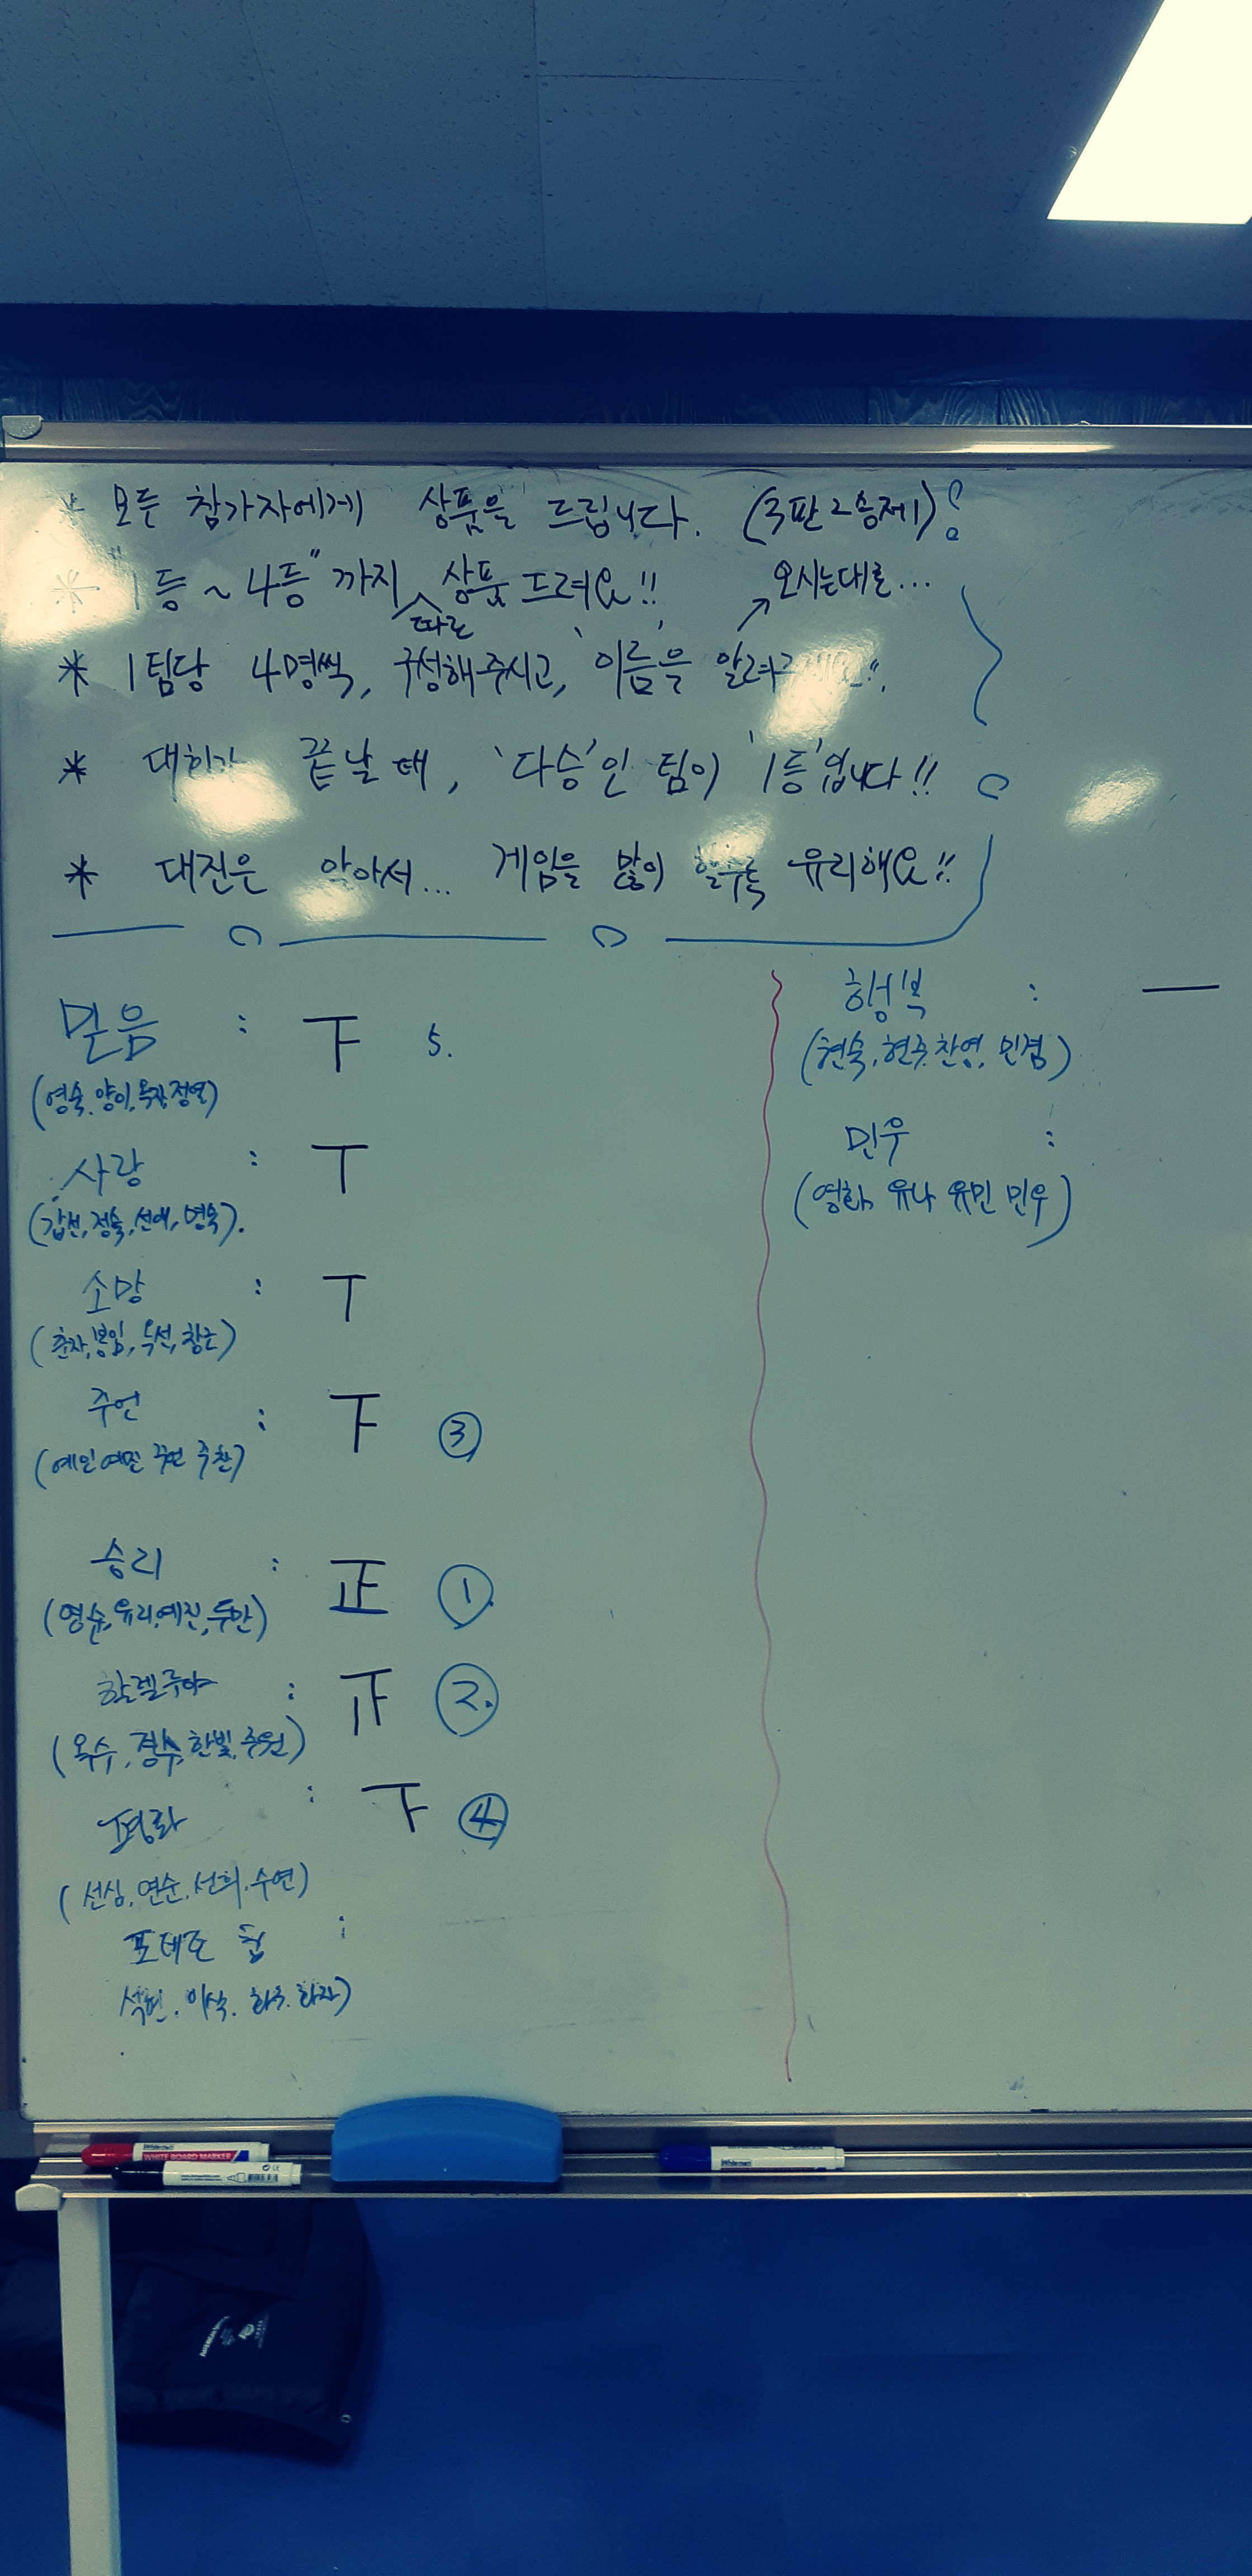 * 모든 참가자에게 상품을 드립니다. (3판2승제)
* "1등~4등"까지 따로 상품드려요!!
오시는대로...
* 1팀당 4명씩, 구성해주시고, '이름'을 알려주
* 대회가 끝날 때, '다승'인 팀이 '1등'입니다!!
* 대진은 알아서... 게임을 많이 할수록 유리해요!!
믿음 : 下 5.
(영숙, 양이, 정열)
사랑 : T
(갑선, 정숙, 선애, 명숙).
소망 : T
(춘자, 봉임, 옥선, 창근)
주언 : 下 ③
(예인 예민 주언 주찬)
승리 : 正 ①.
(영순, 유리, 예진, 두안)
할렐루야 : 正 ②.
(옥수, 경수, 한빛, 주원)
평화 : 下 ④
(선심, 연순, 선희, 수연)
포테토 칩 :
석현. 이삭. 화주. 화자)
행복 : 一
(현숙, 현주, 찬영, 민겸)
민우 :
(영화, 유나 유민 민우)
WHITE BOARD MARKER